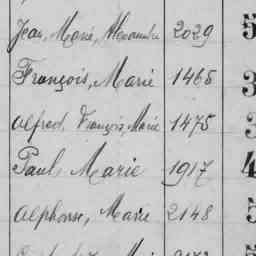 Jean, Marie, Alexandre 2029 5
François, Marie 1465 3
Alfred, François, Marie 1475 3
Paul, Marie 1917 4
Alphonse, Marie 2148 5